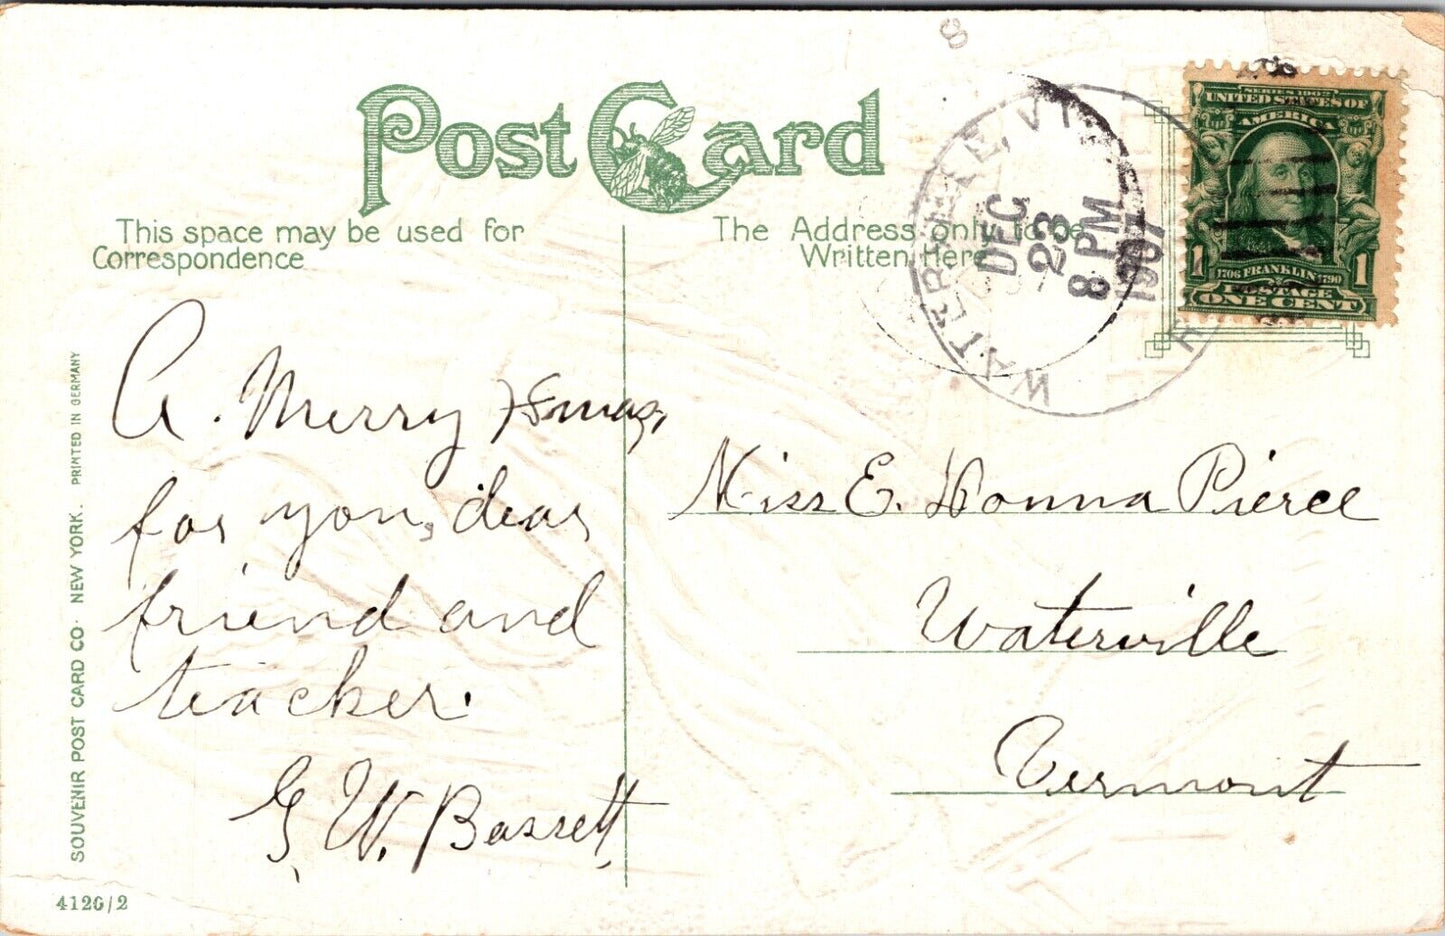 8
Post Card
This space may be used for
Correspondence
The Address only to be
Written Here
WATERVILLE, VT
DEC
23
8 PM
1907
SERIES 1902
UNITED STATES OF
AMERICA
1706 FRANKLIN 1790
1 POSTAGE 1
ONE CENT
A. Merry Xmas,
for you, dear
friend and
teacher.
G. W. Bassett,
Miss E. Donna Pierce
Waterville
Vermont
SOUVENIR POST CARD CO. NEW YORK. PRINTED IN GERMANY
4126/2